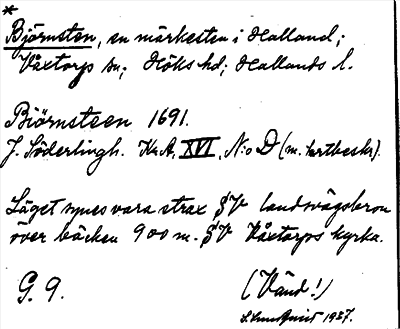 *
Björnsten, en märkesten i Halland;
Våxtorps sn; Höks hd; Hallands l.
Biörnsteen 1691.
J. Söderlingh. Kr.A. XVI, N:o D (m. kartbeskr.).
Läget synes vara strax SV landsvägsbron
över bäcken 900 m. SV Våxtorps kyrka.
G. 9.
(Vänd!)
S. Lundqvist 1937.